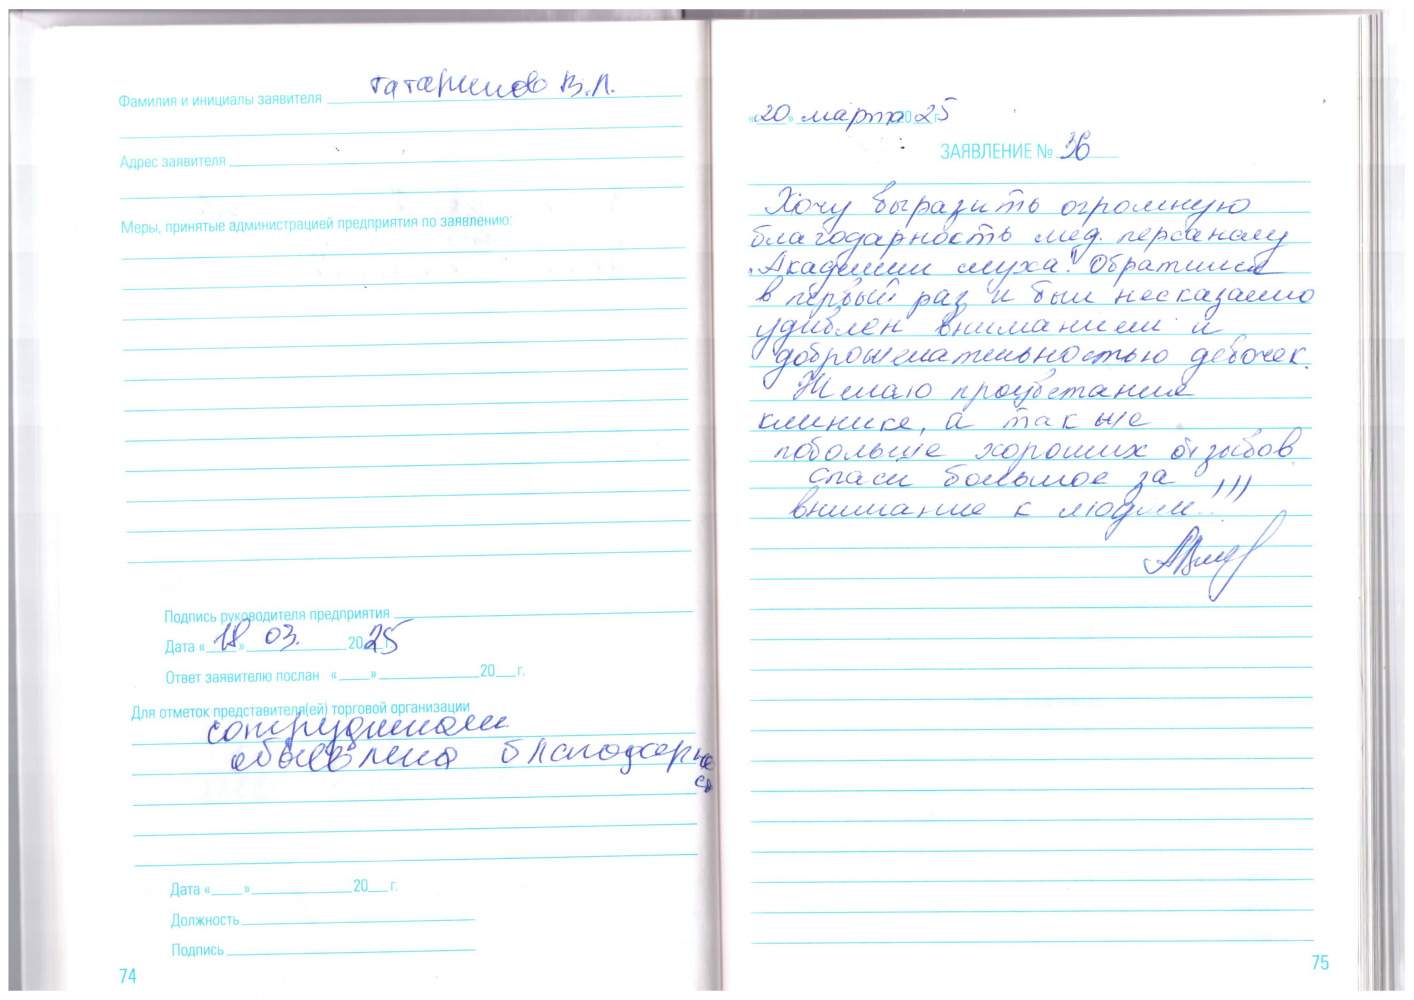 Фамилия и инициалы заявителя Татаринова В.Л.
Адрес заявителя
Меры, принятые администрацией предприятия по заявлению:
Подпись руководителя предприятия
Дата «18» 03. 2025 г.
Ответ заявителю послан « » 20 г.
Для отметок представителя(ей) торговой организации
сотрудникам
объявлена благодарно
сть
Дата « » 20 г.
Должность
Подпись
74
«20» марта 2025 г.
ЗАЯВЛЕНИЕ № 36
Хочу выразить огромную
благодарность мед. персоналу
"Академии слуха". Обратился
в первый раз и был несказанно
удивлен вниманием и
доброжелательностью девочек.
Желаю процветания
клинике, а так же
побольше хороших отзывов
спаси большое за
внимание к людям!!!
75